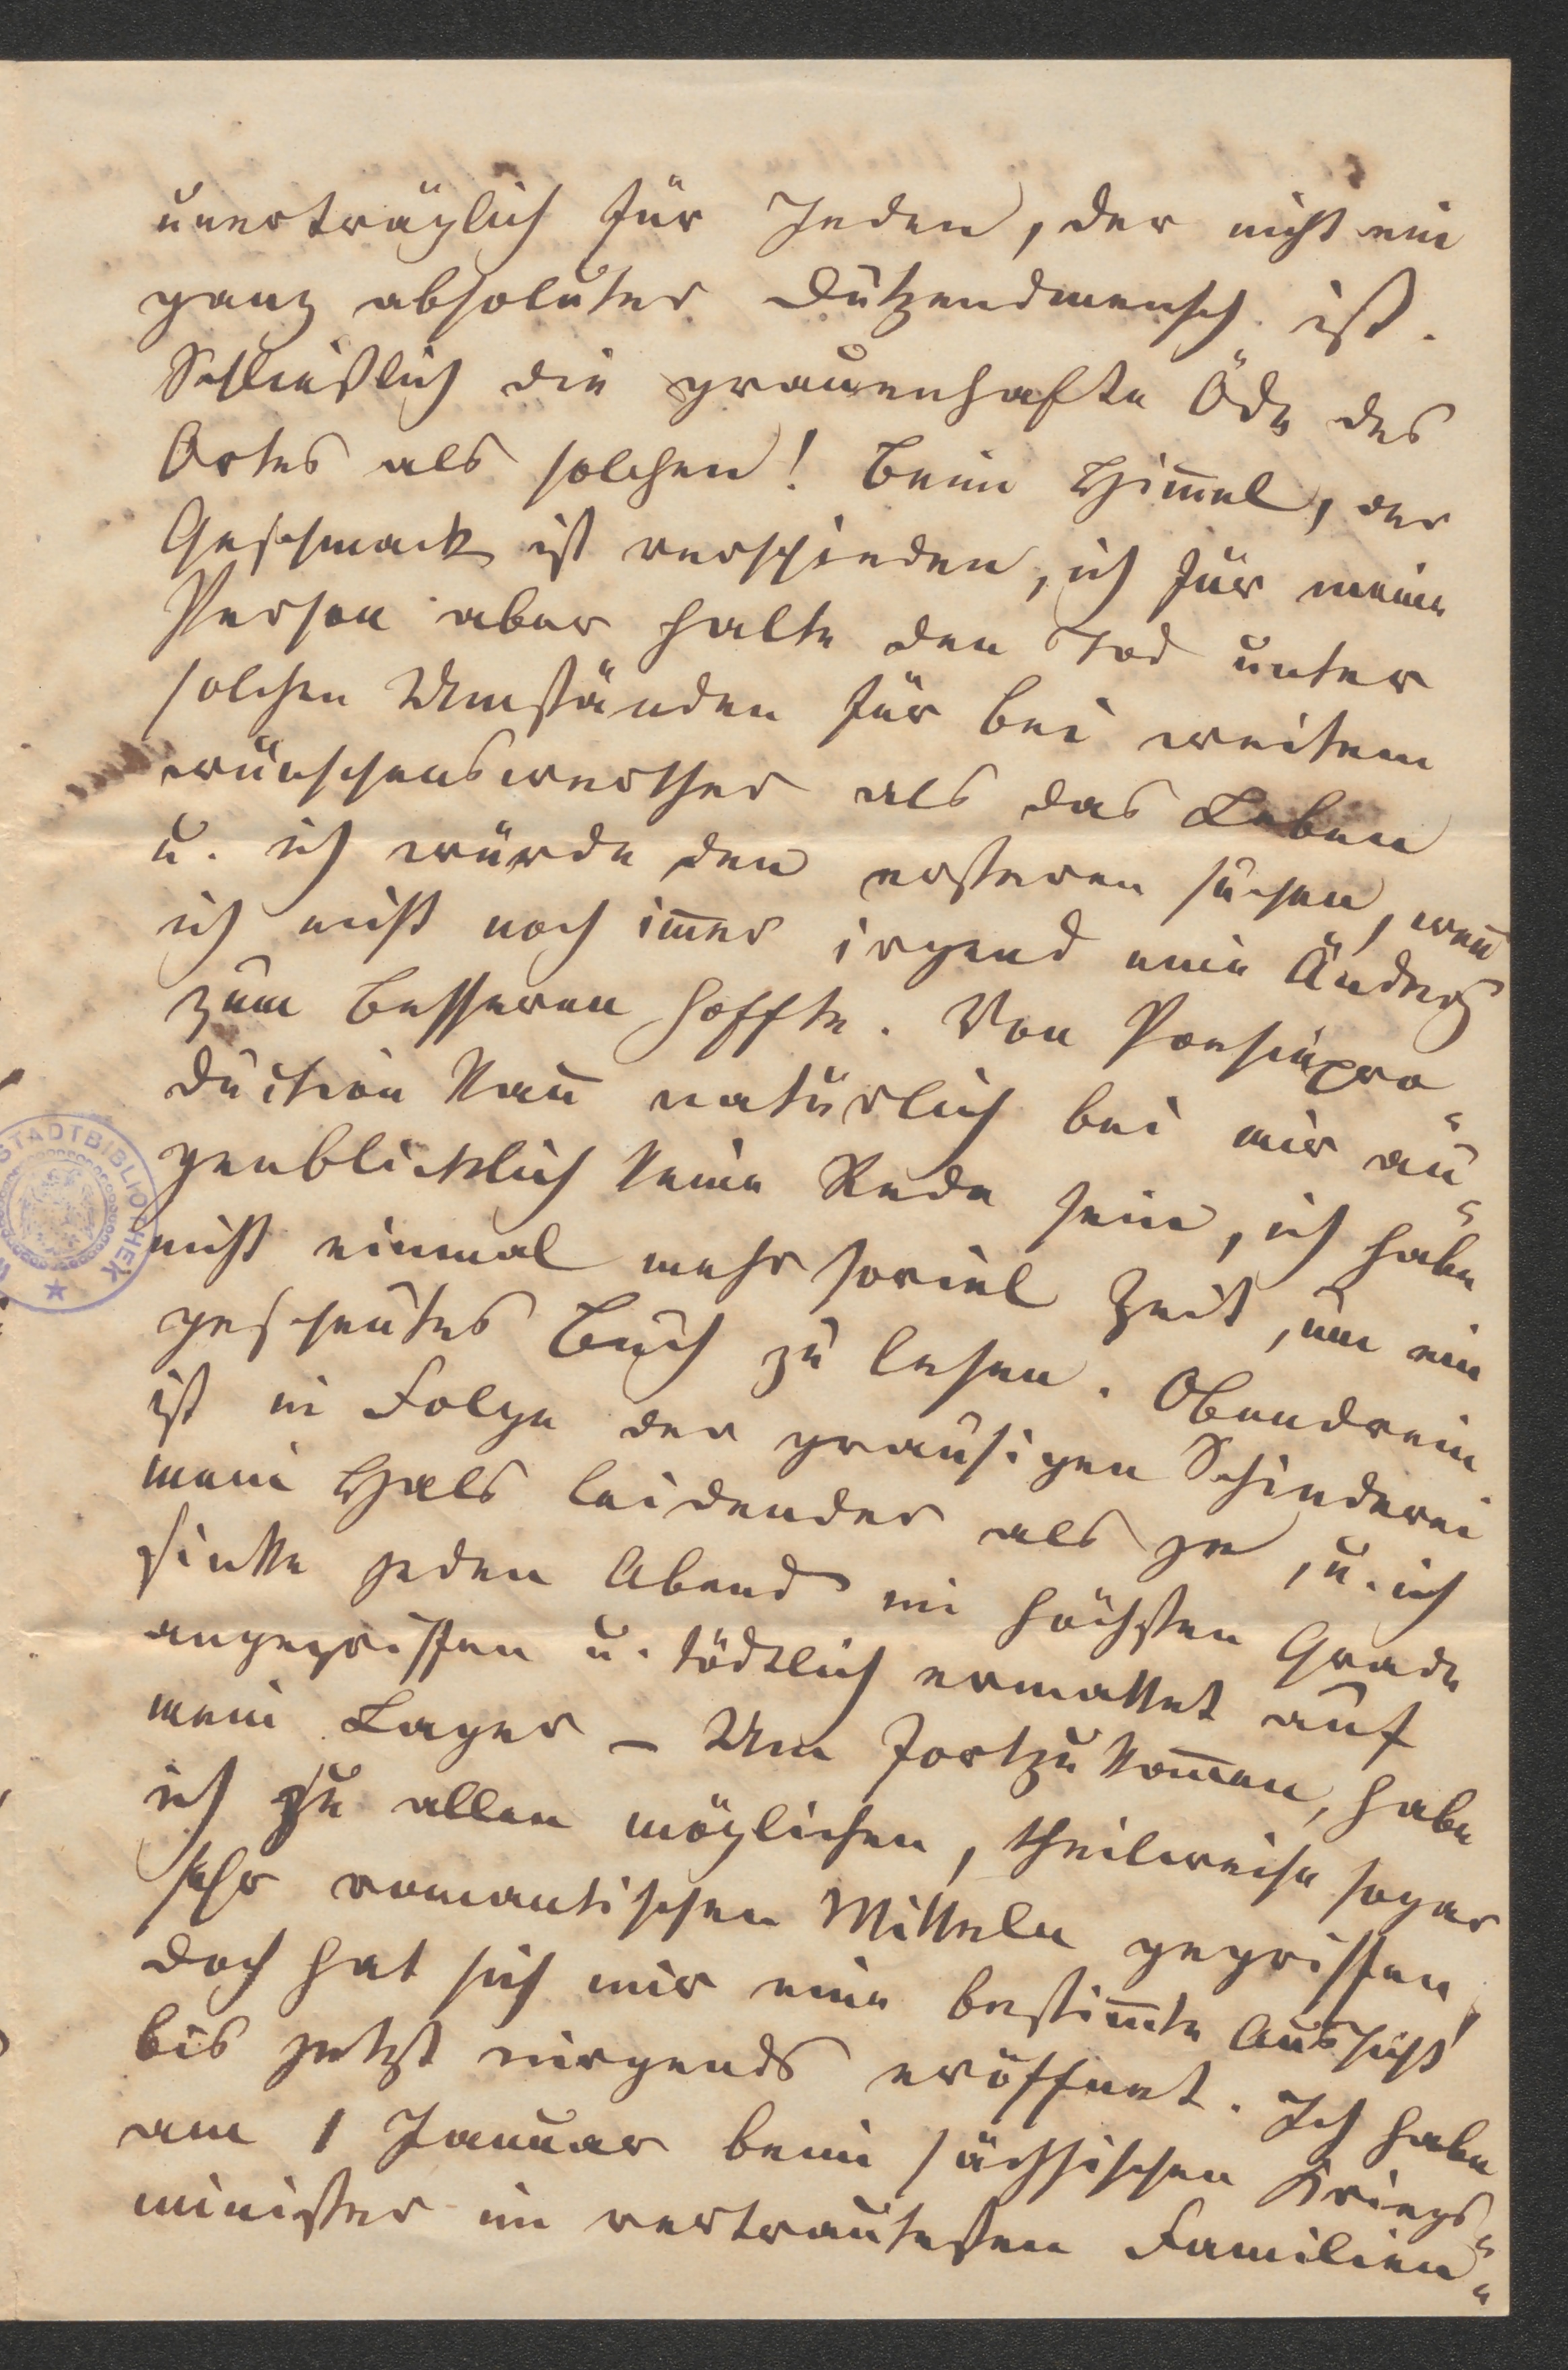 unerträglich für Jeden, der nicht ein
ganz absoluter Dutzendmensch ist.
Schließlich die grauenhafte Öde des
Ortes als solchen! Beim Him̄el, der
Geschmack ist verschieden, ich für meine
Person aber halte den Tod unter
solchen Umständen für bei weitem
wünschenswerther als das Leben
u. ich würde den ersteren suchen, wen̄
ich nicht noch im̄er irgend eine Änderg
zum Besseren hoffte. Von Poesiepro-
duction kan̄ natürlich bei mir au-
genblicklich keine Rede sein, ich habe
nicht einmal mehr soviel Zeit, um ein
gescheutes Buch zu lesen. Obendrein
ist in Folge der grausigen Schinderei
mein Hals leidender als je, u. ich
sinke jeden Abend im höchsten Grade
angegriffen u. tödtlich ermattet auf
mein Lager – Um fortzukom̄en, habe
ich zu allen möglichen, theilweise sogar
sehr romantischen Mitteln gegriffen,
doch hat sich mir eine bestim̄te Aussicht
bis jetzt nirgends eröffnet. Ich habe
am 1 Januar beim sächsischen Kriegs-
minister im vertrautesten Familien-
STADTBIBLIOTHEK